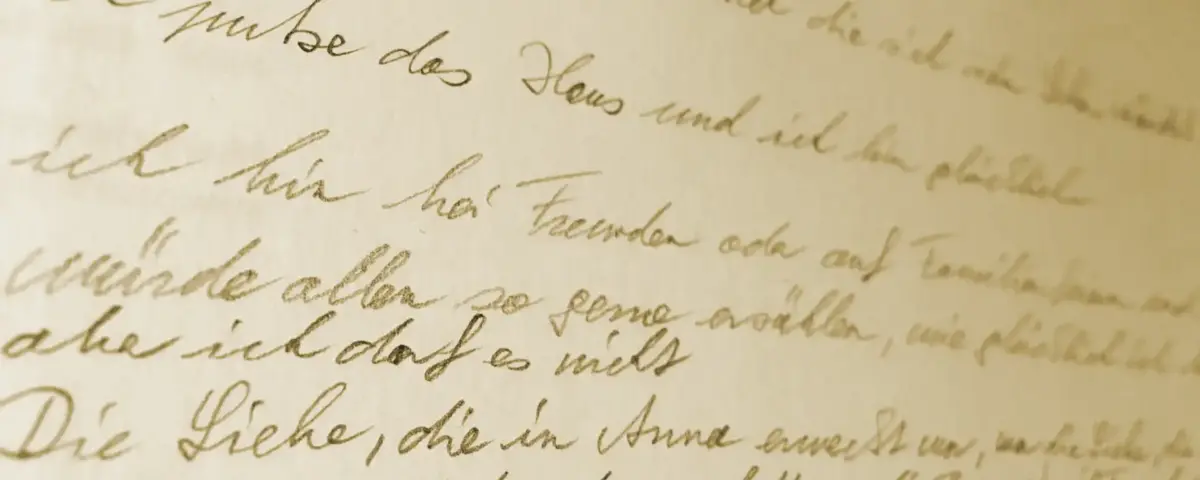 die sich
putze das Haus und ich bin glücklich
ich bin bei Freunden oder auf Familienfeiern und
würde allen so gerne erzählen, wie glücklich ich
aber ich darf es nicht
Die Liebe, die in Anna erweckt war, war die Liebe,